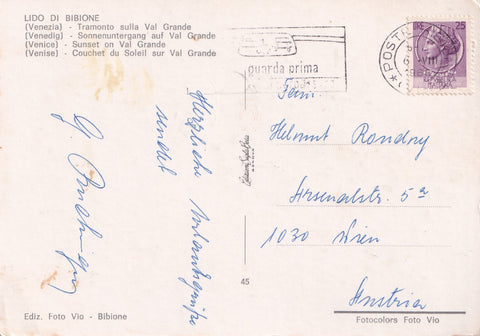 LIDO DI BIBIONE
(Venezia) - Tramonto sulla Val Grande
(Venedig) - Sonnenuntergang auf Val Grande
(Venice) - Sunset on Val Grande
(Venise) - Couchet du Soleil sur Val Grande
guarda prima
Herzliche Urlaubsgrüße
sendet
Fam.
Helmut Rondny
Arsenalstr. 5a
1030 Wien
Austria
45
Ediz. Foto Vio - Bibione
Fotocolors Foto Vio